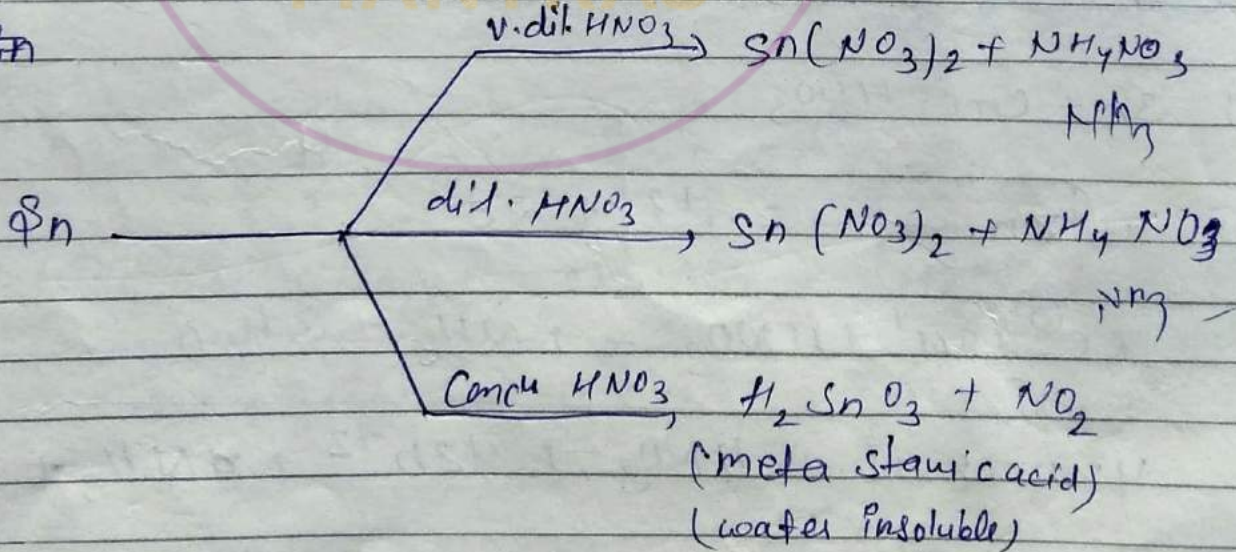 v.dil. HNO3 → Sn(NO3)2 + NH4NO3
NH3
Sn dil. HNO3 → Sn (NO3)2 + NH4 NO3
NH3
Conc. HNO3 → H2 SnO3 + NO2
(meta stannic acid)
(water insoluble)